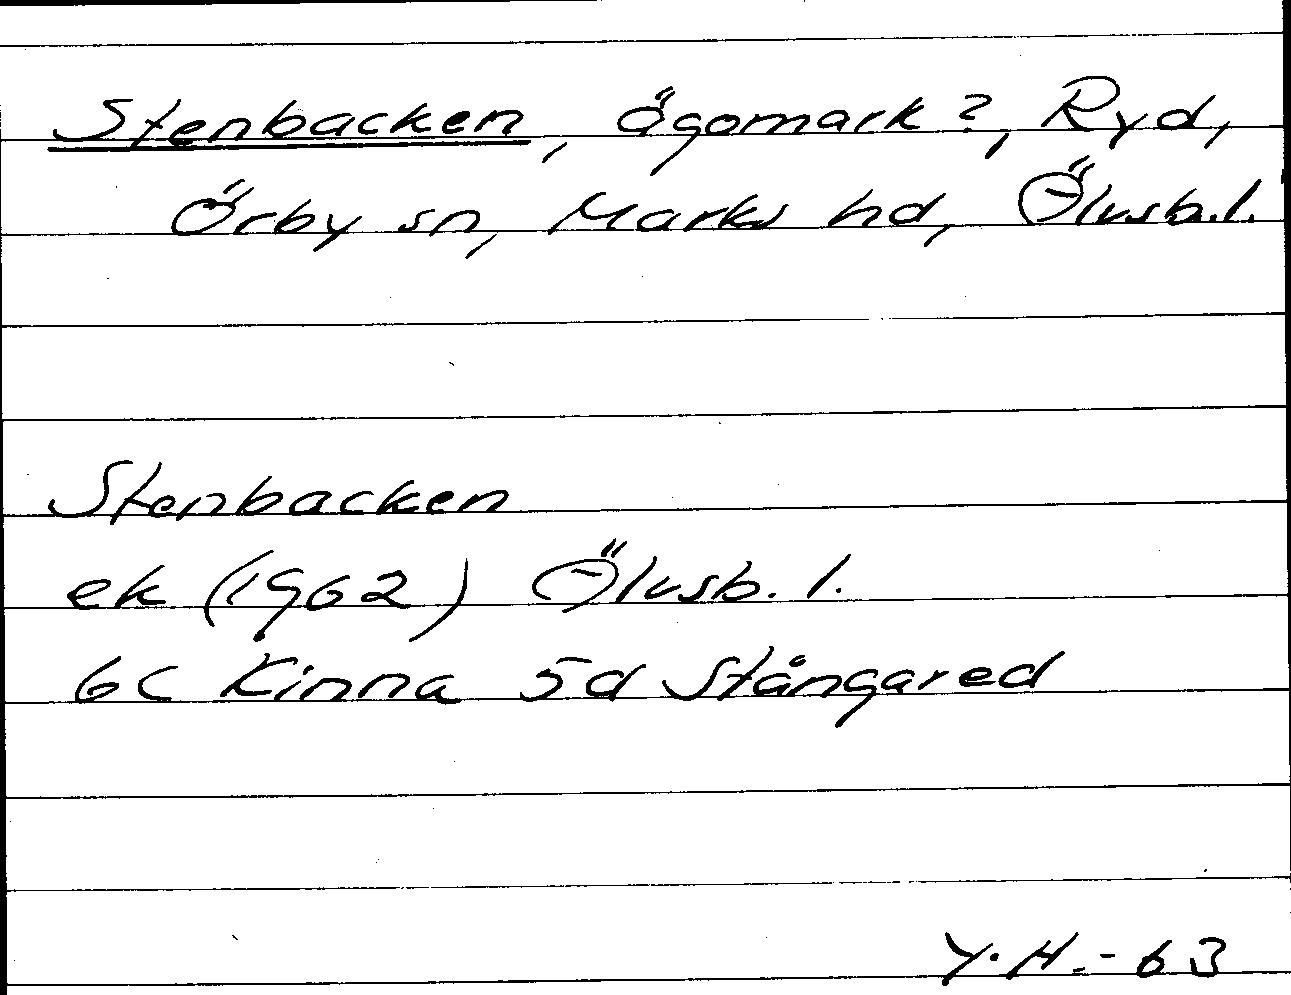 Stenbacken, ägomark?, Ryd,
Örby sn, Marks hd, Älvsb.l.
Stenbacken
ek (1962) Älvsb. l.
6C Kinna 5d Stångared
Y.H.-63